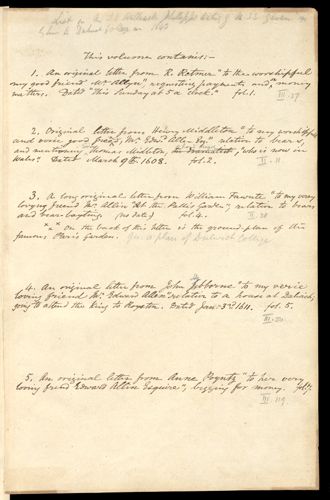 This volume contains:-
1. An original letter from R. "to the worshipfull
my good friend Mr Alleyn", requesting payments and money
matters. Dated "This Sunday at 5 a clock." fol. 1.
III. 27
2. Original letter from Henry Middleton "to my worshipfull
and verie good friend, Mr. Edw. Allin Esq." relation to bears,
and mentioning Thomas Midleton, "who is now in
Wales." Dated March 9th 1608. fol. 2.
II. 11
3. A long original letter from William Fawnte "to my very
loving friend Mr. Allin at the Pallis Garden", relation to bears
and bear-bayting. (no date) fol. 4.
II. 28
"a" On the back of this letter is the ground plan of the
famous Paris Garden. a plan of Dulwich College
4. An original letter from John "to my verie
loving friend Mr. Edward Allen" relation to a house at Dulwich,
going to attend the King to Royston. Dated Jan: 3rd 1611. fol. 5.
III.
5. An original letter from Anne Poyntz "to her very
loving friend Edward Allin Esquire", begging for money.
III. 119